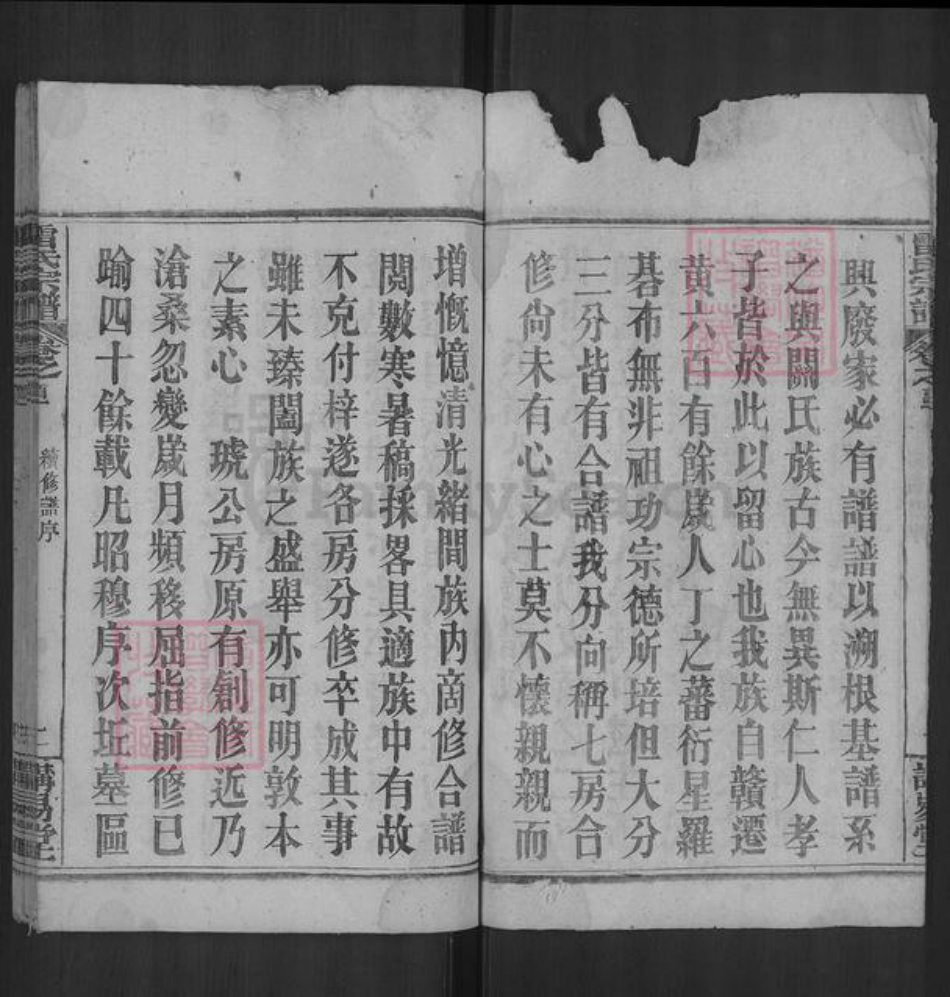 興廢家必有譜譜以溯根基譜系
之與關氏族古今無異斯仁人孝
子皆於此以留心也我族自贛遷
黃六百有餘歲人丁之蕃衍星羅
碁布無非祖功宗德所培但大分
三分皆有合譜我分向稱七房合
修尙未有心之士莫不懷親親而
增慨憶清光緒間族內商修合譜
閱數寒暑稿採畧具適族中有故
不克付梓遂各房分修卒成其事
雖未臻闔族之盛舉亦可明敦本
之素心 琥公房原有創修近乃
滄桑忽變歲月頻移屈指前修已
踰四十餘載凡昭穆序次坵墓區
雷氏宗譜
卷之首
續修譜序
二
講易堂
FamilySearch